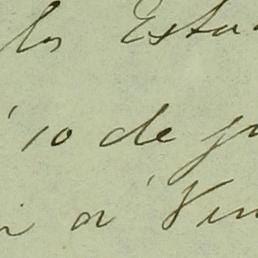 los Esta
10 de ju
a Ven